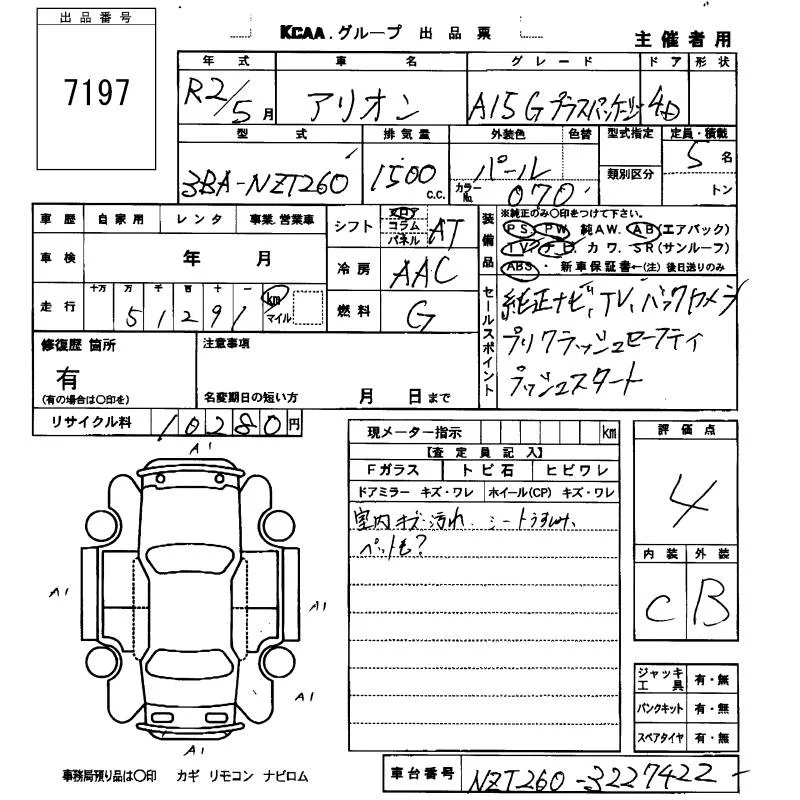 出品番号
7197
KCAA.グループ 出品票
主催者用
年式 車名 グレード ドア 形状
R2/5月 アリオン A15 Gプラスパッケージ 4D
型式 排気量 外装色 色替 型式指定 定員・積載
3BA-NZT260 1500 C.C. パール 5名
カラーNo. 070 類別区分 トン
車歴 自家用 レンタ 事業.営業車
シフト フロア コラム パネル AT
装備品
※純正のみ〇印をつけて下さい。
PS. PW. 純AW. AB(エアバック)
TV. ナビ. カワ. SR(サンルーフ)
ABS. 新車保証書←(注)後日送りのみ
車検 年 月
冷房 AAC
走行 十万 万 千 百 十 一 km マイル
51291
燃料 G
セールスポイント
純正ナビ,TV,バックカメラ
プリクラッシュセーフティ
プッシュスタート
修復歴 箇所
有
(有の場合は〇印を)
注意事項
名変期日の短い方 月 日まで
リサイクル料 10280円
現メーター指示 km
【査定員記入】
Fガラス トビ石 ヒビワレ
ドアミラー キズ・ワレ ホイール(CP) キズ・ワレ
室内キズ・汚れ. シートうすじみ、
ペットも?
評価点
4
内装 外装
C B
A1
A1
A1
A1
A1
ジャッキ工具 有・無
パンクキット 有・無
スペアタイヤ 有・無
事務局預り品は〇印 カギ リモコン ナビロム
車台番号 NZT260-3227422-